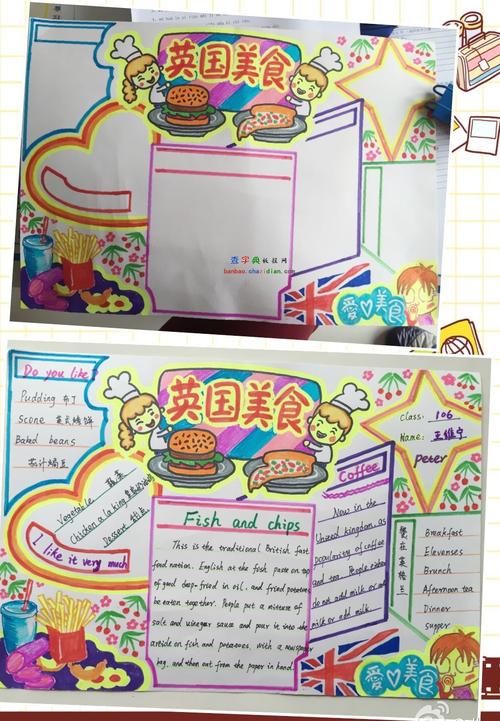 英国美食
查字典板报网
banbao.chazidian.com
爱美食
英国美食
Do you like?
Pudding 布丁
Scone 英式烤饼
Baked beans
茄汁焗豆
Vegetable 蔬菜
Chicken a la king
Dessert 甜点
I like it very much
Fish and chips
This is the traditional British fast
food nation. English at the fish paste on top
of good deep-fried in oil, and fried potatoes
be eaten together. People put a mixture of
sale and vinegar sauce and pour in into the
article on fish and potatoes, with a newspaper
bag, and then out from the paper in hand.
Coffee
Now in the
United kingdom as
popularity of coffee
and tea. People either
do not add milk or add
or add milk.
Class: 106
Name: 王维宁
Peter
餐在英格兰
Breakfast
Elevenses
Brunch
Afternoon tea
Dinner
Supper
愛美食